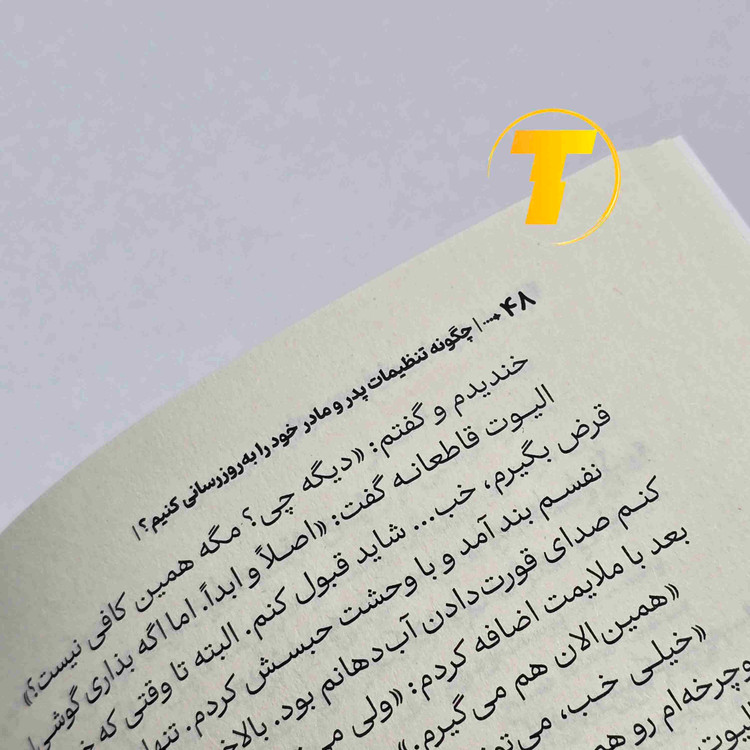 T
۴۸ ... | چگونه تنظیمات پدر و مادر خود را به‌روزرسانی کنیم؟ |
خندیدم و گفتم: «دیگه چی؟ مگه همین کافی نیست؟»
الیوت قاطعانه گفت: «اصلاً و ابداً. اما اگه بذاری گوشی
قرض بگیرم، خب... شاید قبول کنم. البته تا وقتی که
نفسم بند آمد و با وحشت حبسش کردم.
کنم صدای قورت‌دادن آب‌دهانم بود.
بعد با ملایمت اضافه کردم: «ولی
«همین‌الان هم می‌گیرم.»
«خیلی خب،
دوچرخه‌ام رو
الیوت